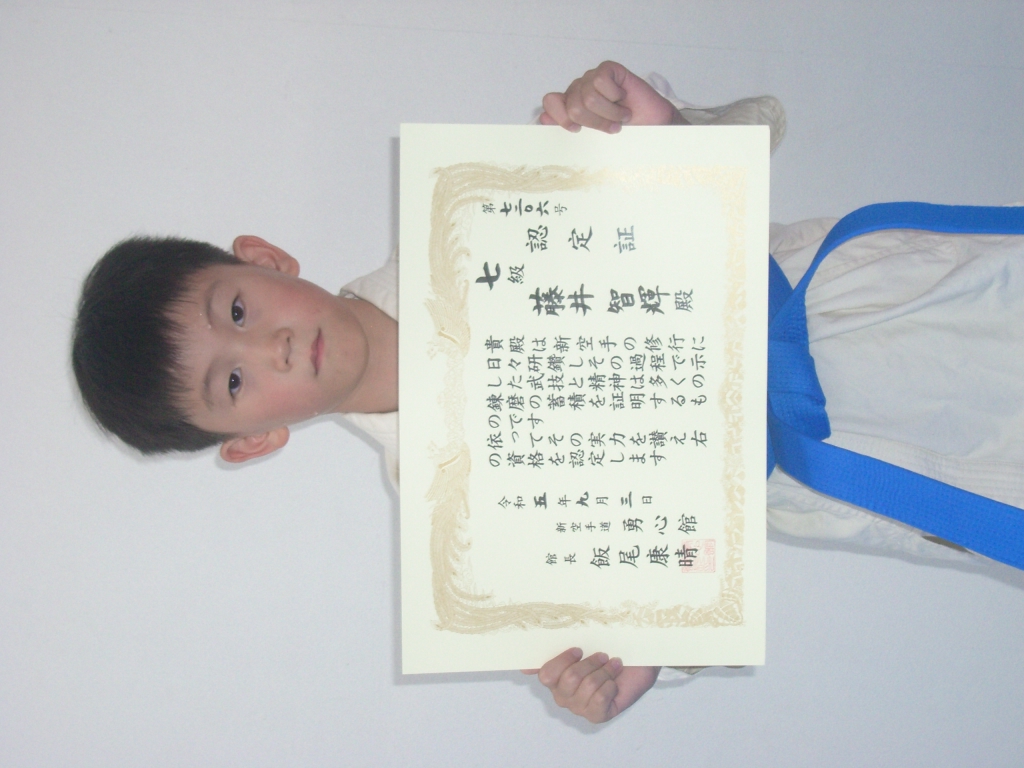 第七二〇六号
認定証
七級
藤井智輝殿
貴殿は新空手の修行に
日々研鑽しその過程で示
した武技と精神は多くの
錬磨の蓄積を証明するも
のです
依ってその実力を讃え右
の資格を認定します
令和五年九月三日
新空手道 勇心館
館長 飯尾康晴